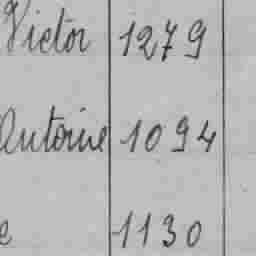 Victor 1279
Antoine 1094
e 1130